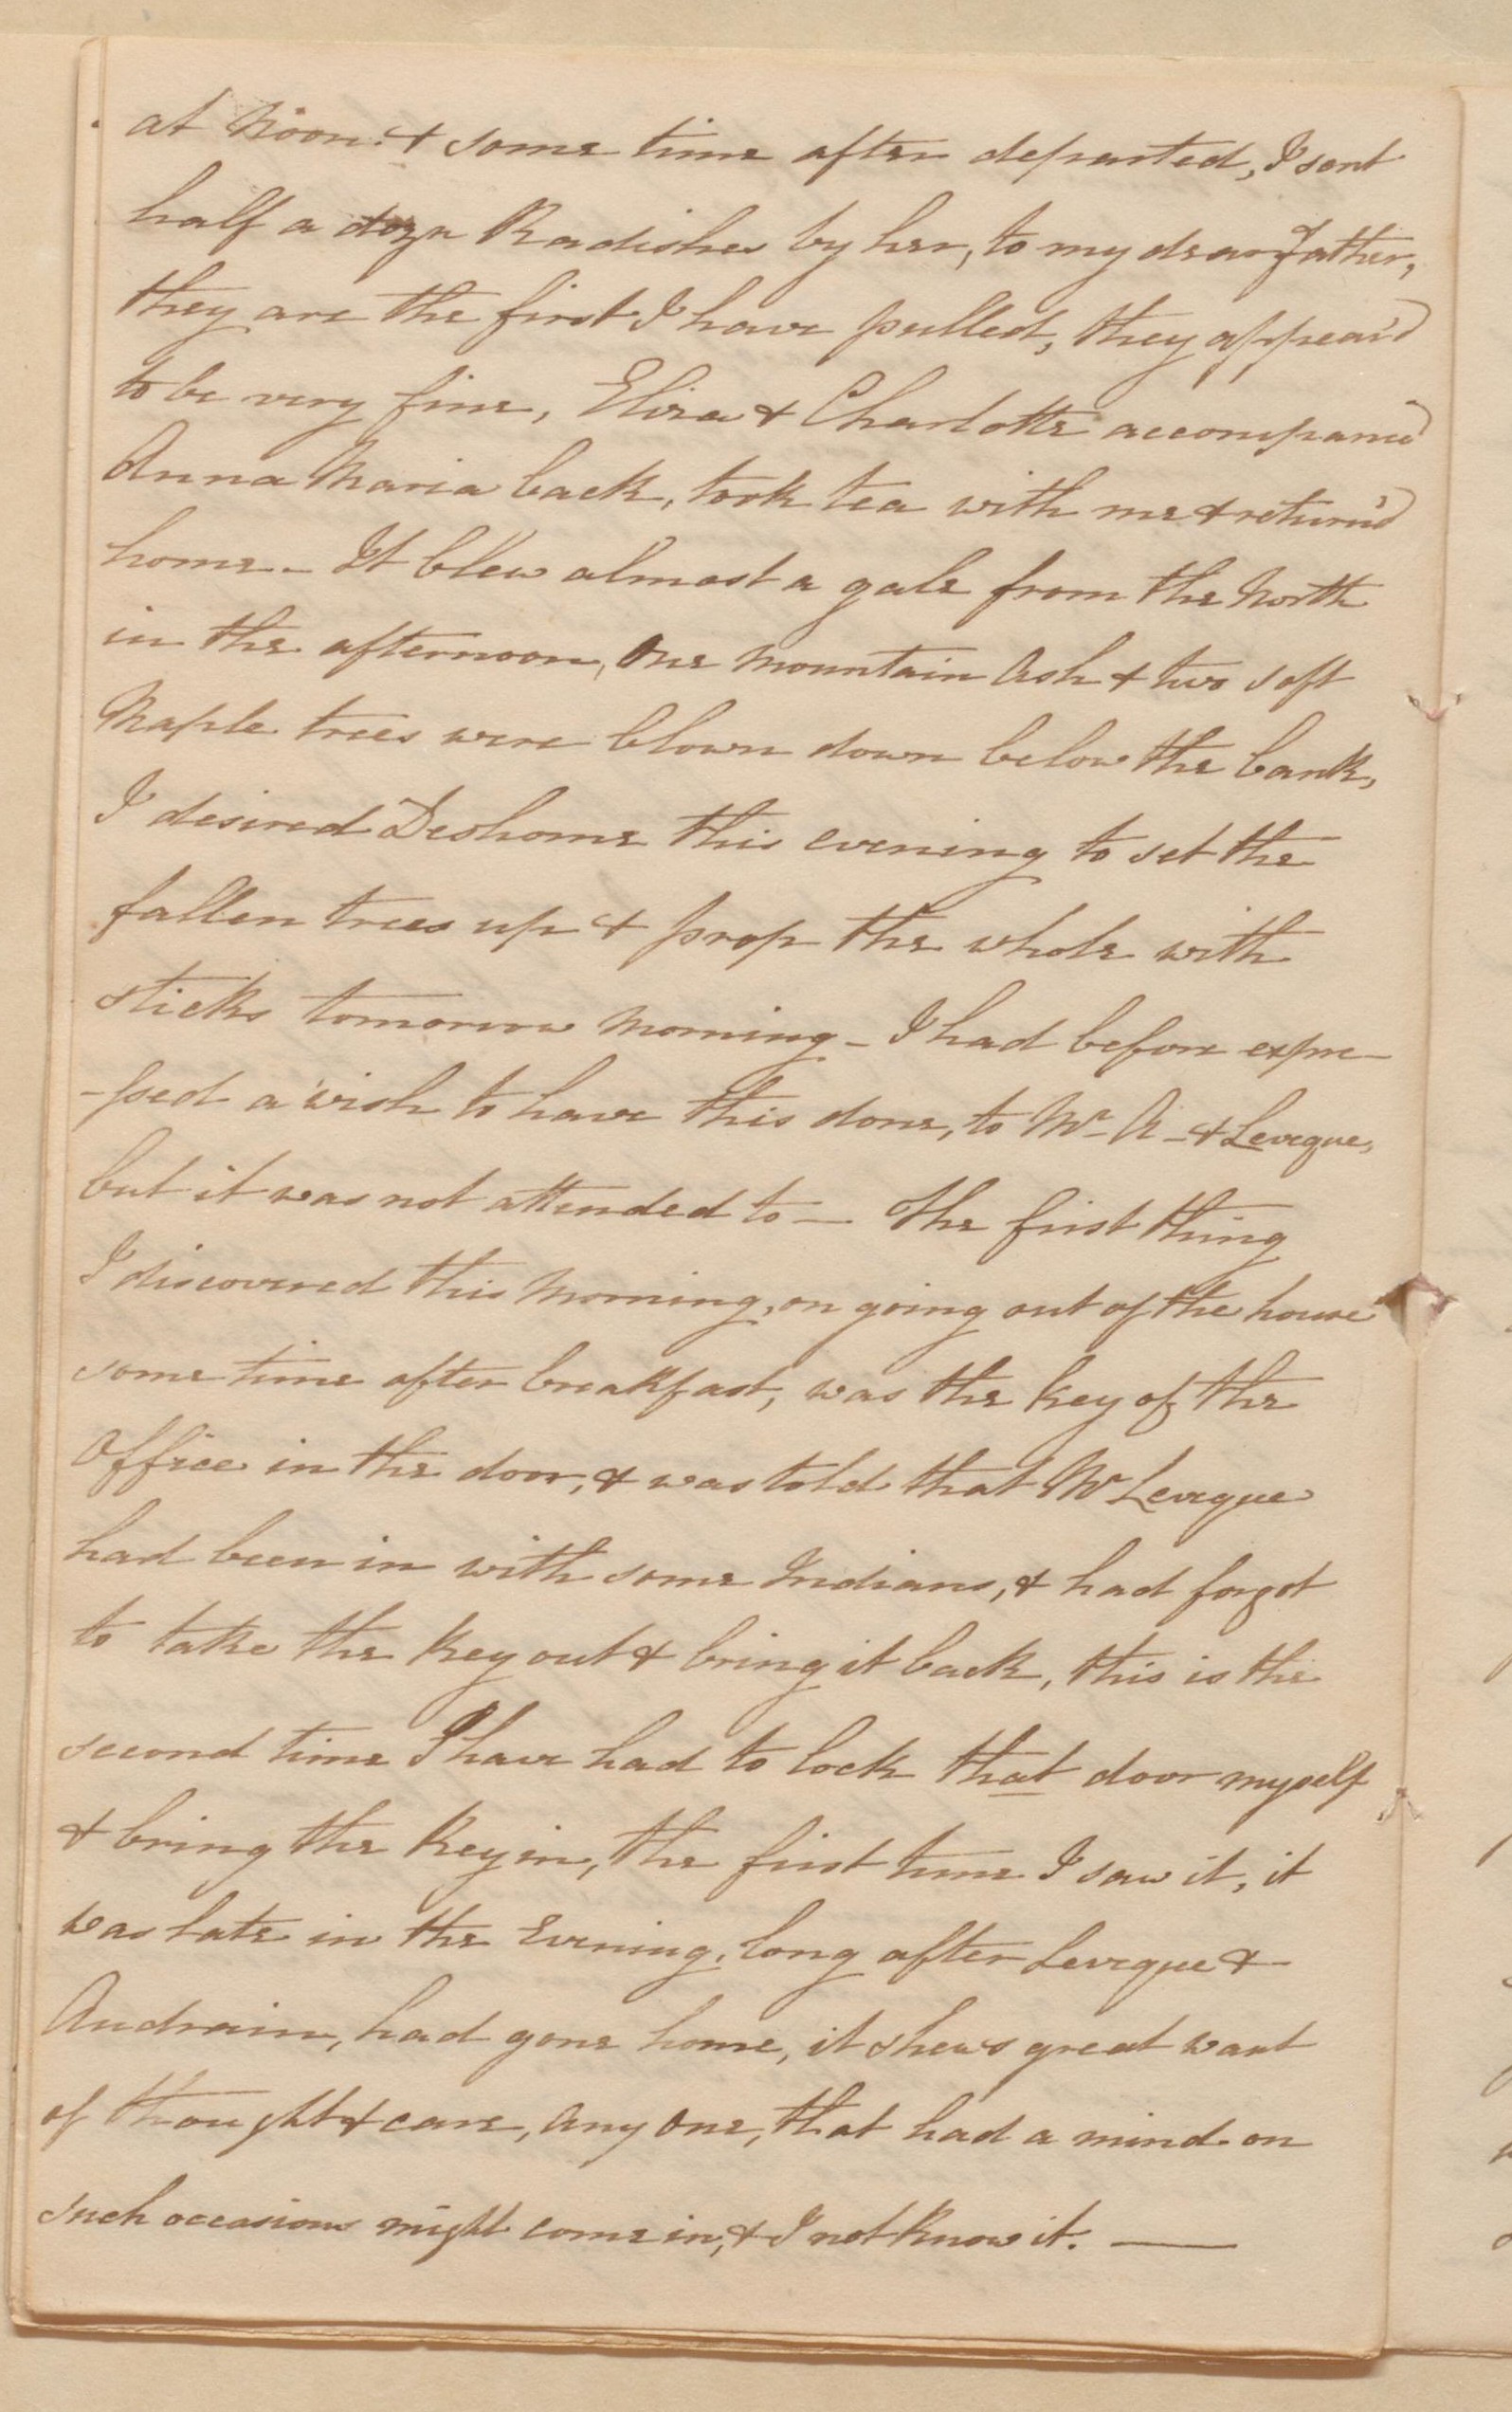 at Noon & some time after departed, I sent
half a dozn Radishes by her, to my dear Father,
they are the first I have pulled, they appear'd
to be very fine, Eliza & Charlotte accompani'd
Anna Maria back, took tea with me & return'd
home - It blew almost a gale from the North
in the afternoon, One Mountain Ash & two soft
Maple trees were blown down below the bank,
I desired Deshome this evening to set the
fallen trees up & prop the whole with
sticks tomorrow Morning - I had before expre-
-ssed a wish to have this done, to Mr A - & Leveque,
but it was not attended to - The first thing
I discovered this Morning, on going out of the house
some time after breakfast, was the key of the
Office in the door, & was told that Mr Leveque
had been in with some Indians, & had forgot
to take the Key out & bring it back, this is the
second time I have had to lock that door myself
& bring the Key in, the first time I saw it, it
was late in the Evening, long after Leveque &
Audrain, had gone home, it shews great want
of thought & care, Any One, that had a mind on
such occasions might come in, & I not Know it. —